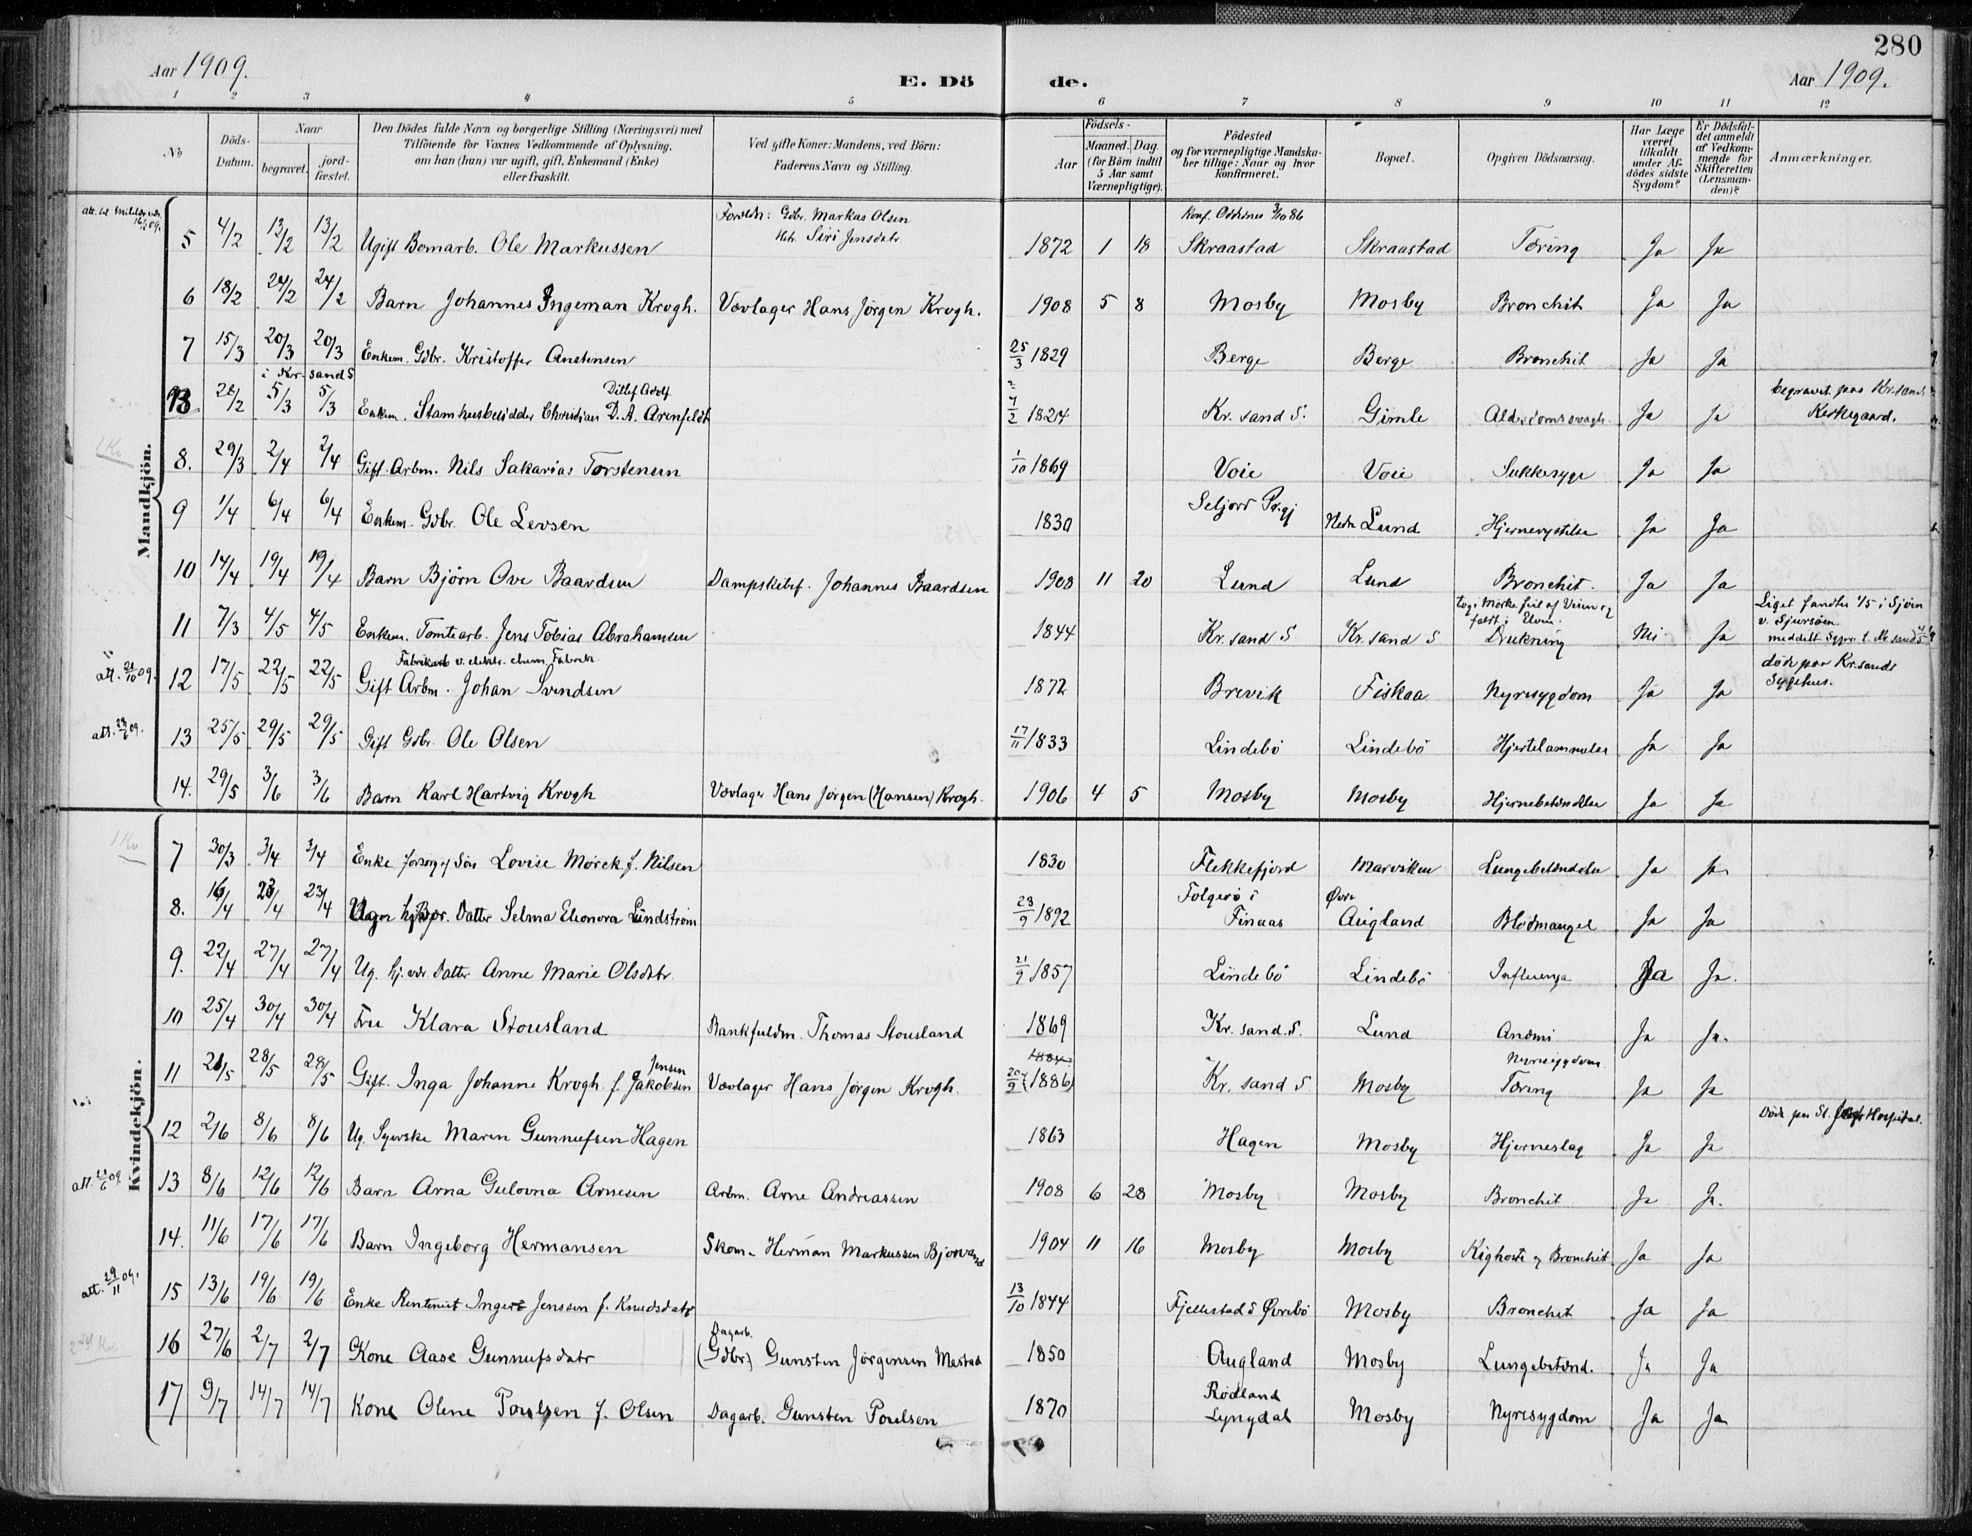 280
Aar 1909.
E. Dö de.
Aar 1909.
1 2 3 4 5 6 7 8 9 10 11 12
No
Döds-Datum.
Naar
begravet.
jord-fæstet.
Den Dödes fulde Navn og borgerlige Stilling (Næringsvei) med
Tilföiende for Voxnes Vedkommende af Oplysning,
om han (hun) var ugift, gift, Enkemand (Enke)
eller fraskilt.
Ved gifte Koner: Mandens, ved Börn:
Faderens Navn og Stilling.
Födsels-
Aar
Maaned. Dag.
(for Börn indtil
5 Aar samt
Værnepligtige).
Födested
og for værnepligtige Mandska-
ber tillige: Naar og hvor
konfirmeret.
Bopæl.
Opgiven Dödsaarsag.
Har Læge
været
tilkaldt
under Af-
dödes sidste
Sygdom?
Er Dödsfal-
det anmeldt
af Vedkom-
mende for
Skifteretten
(Lensman-
den)?
Anmærkninger.
Mandkjön.
Forældr: Gdbr. Markus Olsen
Konf. Oddernes 3/10 86
5 4/2 13/2 13/2 Ugift Bomarb. Ole Markussen Siri Jensdatr 1872 1 18 Skraastad Skraastad Tæring Ja Ja
6 18/2 24/2 24/2 Barn Johannes Ingeman Krogh. Vævlager Hans Jørgen Krogh. 1908 5 8 Mosby Mosby Bronchit Ja Ja
7 15/3 20/3 20/3 Enkem. Gdbr. Kristoffer Anstensen 25/3 1829 Berge Berge Bronchit Ja Ja
i Kr.sand S
Ditlef Adolf
28/2 5/3 5/3 Enkem. Stamhusbesidder Christian D. A. Arenfeldt 1824 Kr. sand S. Gimle Ja Ja begravet paa Kr.sands
Kirkegaard.
8. 29/3 2/4 2/4 Gift Arbm. Nils Sakarias Torstensen 1/10 1869 Voie Voie Sukkersyge Ja Ja
9 1/4 6/4 6/4 Enkem. Gdbr. Ole Levsen 1830 Seljord Prgj Nedr Lund Hjernerystelse Ja Ja
10 14/4 19/4 19/4 Barn Bjørn Ove Baardsen Dampskibsf. Johannes Baardsen 1908 11 20 Lund Lund Bronchit. Ja Ja
tog i Mørke feil af Veien og
faldt i Elven
Liget fandtes 1/5 i Sjøen
11 7/3 4/5 4/5 Enkem. Tomtearb. Jens Tobias Abrahamsen 1844 Kr. sand S Kr. sand S Drukning Nei Ja
att. 21/10 09.
12 17/5 22/5 22/5 Gift Arbm. Johan Svendsen 1872 Brevik Fiskaa Nyresygdom Ja Ja døde paa Kr.sands
Sygehus.
13 25/5 29/5 29/5 Gift Gdbr. Ole Olsen 17/11 1833 Lindebö Lindebö Hjertelammelse Ja Ja
14. 29/5 3/6 3/6 Barn Karl Hartvig Krogh Vævlager Hans Jørgen (Hansen) Krogh. 1906 4 5 Mosby Mosby Hjernebetændelse Ja Ja
Kvindekjön.
7 30/3 3/4 3/4 Enke forsørg. af Søn Lovise Mørck f. Nilsen 1830 Flekkefjord Marviken Lungebetændelse Ja Ja
8. 16/4 23/4 23/4 Datter Selma Elionora Lindstrøm 23/9 1892 Folgerö i
Finaas Øvre
Augland Blodmangel Ja Ja
9. 22/4 27/4 27/4 Ug. hj.vær. Datter Anne Marie Olsdatr. 21/9 1857 Lindebö Lindebö Influenza Ja Ja.
10 25/4 30/4 30/4 Fru Klara Stousland Bankfuldm. Thomas Stousland 1869 Kr. sand. S. Lund Anæmi Ja Ja.
11 21/5 28/5 28/5 Gift. Inga Johanne Krogh. f. Jensen
Jakobsen Vævlager Hans Jørgen Krogh. 1884
20/2 (1886) Kr. sand S Mosby Nyresygdom
Tæring Ja Ja
12 2/6 8/6 8/6 Ug. Syerske Maren Gunnufsen Hagen 1863 Hagen Mosby Hjerneslag Ja Ja Døde paa St. Josefs Hospital.
13 8/6 12/6 12/6 Barn Arna Gulovna Arnesen Arbm. Arne Andreassen 1908 6 28 Mosby Mosby Bronchit Ja Ja.
14. 11/6 17/6 17/6 Barn Ingeborg Hermansen Skom. Herman Markussen Bjorvand 1904 11 16 Mosby Mosby Kighoste og Bronchit Ja Ja
att. 29/11 09.
15 13/6 19/6 19/6 Enke Rentenist Inger Jenssen f. Knudsdatr 13/10 1844 Fjellestad S Øvrebö Mosby Bronchit Ja Ja
16 27/6 2/7 2/7 Kone Aase Gunnufsdatr Dagarb.
(Gdbr) Gunsten Jørgensen Mestad 1850 Augland Mosby Lungebetænd. Ja Ja
17 9/7 14/7 14/7 Kone Olene Poulsen f. Olsen Dagarb. Gunsten Poulsen 1870 Rødland
Lyngdal Mosby Nyresygdom Ja Ja